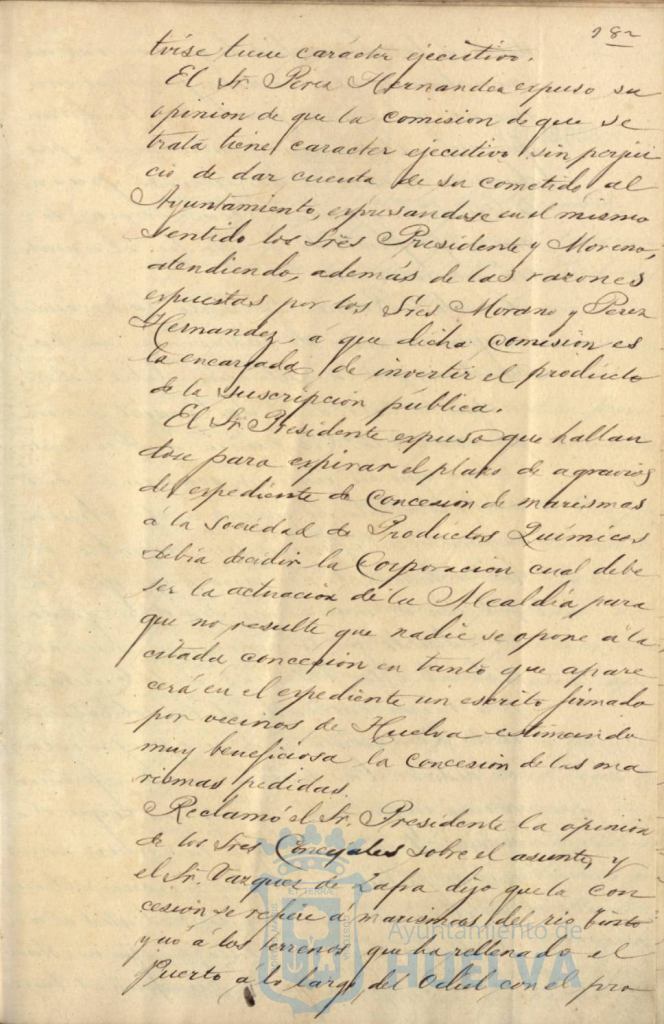 282
tvise tiene carácter ejecutivo.
El Sr. Perez Hernandez expuso su
opinion de que la comision de que se
trata tiene caracter ejecutivo sin perjui
cio de dar cuenta de su cometido al
Ayuntamiento, expresandose en el mismo
sentido los Sres Presidente y Moreno,
atendiendo, además de las razones
expuestas por los Sres Moreno y Perez
Hernandez, á que dicha Comisión es
la encargada de invertir el producto
de la suscripción pública.
El Sr. Presidente expuso que hallan
dose para expirar el plazo de agravios
del expediente de concesion de marismas
á la Sociedad de Productos Químicos
debia decidir la Corporación cual debe
ser la actuación de la Alcaldía para
que no resulte que nadie se opone á la
citada concesion en tanto que apare
cerá en el expediente un escrito firmado
por vecinos de Huelva estimando
muy beneficiosa la concesion de las ma
rismas pedidas.
Reclamó el Sr. Presidente la opinion
de los Sres Concejales sobre el asunto, y
el Sr. Vazquez de Zafra dijo que la con
cesión se refiere á marismas del rio Tinto
y nó á los terrenos que ha rellenado el
Puerto á lo largo del Odiel con el pro
Ayuntamiento de
HUELVA